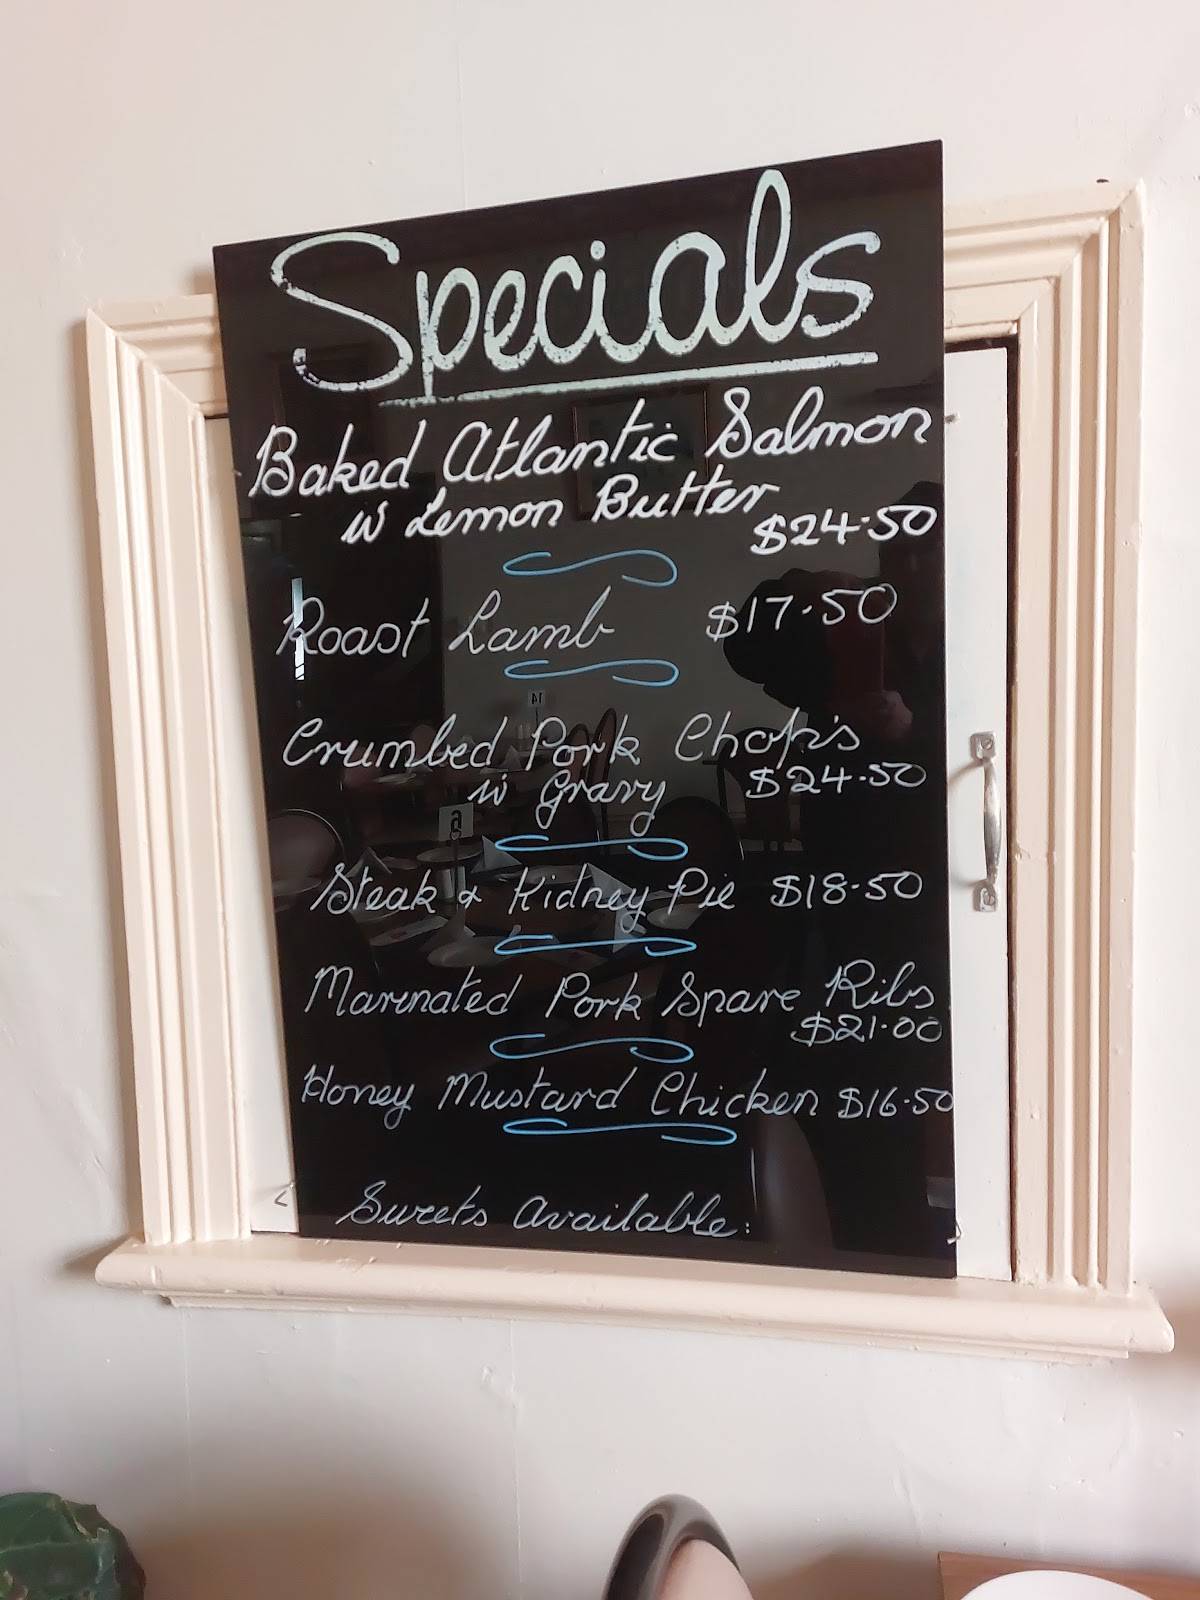 Specials
Baked Atlantic Salmon
w Lemon Butter
$24.50
Roast Lamb $17.50
Crumbed Pork Chop's
w Gravy $24.50
Steak & Kidney Pie $18.50
Marinated Pork Spare Ribs
$21.00
Honey Mustard Chicken $16.50
Sweets Available: